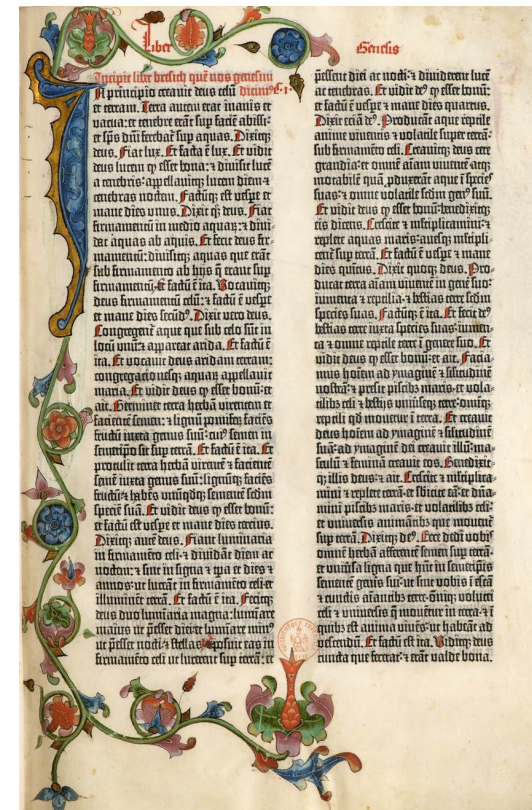 Liber
Genesis
Incipit liber bresith quē nos genesim
dicim⁹. c. i.
In principio creavit deus celū
et terram. Terra autem erat inanis et
vacua: et tenebre erāt sup faciē abissi:
et sp̄s dn̄i ferebat̄ sup aquas. Dixitq;
deus. Fiat lux. Et facta ē lux. Et vidit
deus lucem q̄ esset bona: ⁊ divisit lucē
a tenebris: appellavitq; lucem diem ⁊
tenebras noctem. Factūq; est vespe et
mane dies unus. Dixit q̄; deus. Fiat
firmamentū in medio aquar̄: ⁊ divi-
dat aquas ab aquis. Et fecit deus fir-
mamentū: divisitq; aquas que erāt
sub firmamento ab hijs q̄ erant sup
firmamentū: et factū ē ita. Vocavitq;
deus firmamentū celū: ⁊ factū ē vespe
et mane dies secūd⁹. Dixit vero deus.
Congregent̄ aque que sub celo sūt in
locū unū ⁊ appareat arida. Et factū ē
ita. Et vocavit deus aridam terram:
congregacionesq; aquar̄ appellavit
maria. Et vidit deus q̄ esset bonū: et
ait. Germinet terra herbā virentem et
facientē semen: ⁊ lignū pomifeꝝ faciēs
fructū iuxta genus suū: cui⁹ semen in
semetipo sit sup terrā. Et factū ē ita. Et
protulit terra herbā virentē ⁊ facientē
semē iuxta genus suū: lignūq; faciēs
fructū ⁊ habēs unūqdq; sementē scdm
speciē suā. Et vidit deus q̄ esset bonū:
et factū est vespe et mane dies tercius.
Dixitq; autē deus. Fiant luminaria
in firmamēto celi: ⁊ dividāt diem ac
noctem: ⁊ sint in signa ⁊ tp̄a et dies ⁊
annos: ut luceāt in firmamēto celi et
illuminēt terrā. Et factū ē ita. Fecitq;
deus duo luminaria magna: luminare
maius ut p̄esset diei et luminare min⁹
ut p̄esset nocti: ⁊ stellas ⁊ posuit eas in
firmamēto celi ut lucerent sup terrā: et
p̄essent diei ac nocti: ⁊ dividerent lucē
ac tenebras. Et vidit de⁹ q̄ esset bonū:
et factū ē vespe ⁊ mane dies quartus.
Dixit eciā de⁹. Producāt aque reptile
anime viventis ⁊ volatile super terrā:
sub firmamēto celi. Creavitq; deus cete
grandia: et omnē aīam viventē atq;
motabilē quā pduxerāt aque ī species
suas: ⁊ omne volatile scdm gen⁹ suū.
Et vidit deus q̄ esset bonū: benedixitq;
eis dicens. Crescite ⁊ m̄ltiplicamini: ⁊
replete aquas maris: avesq; m̄ltipli-
cent̄ sup terrā. Et factū ē vespe ⁊ mane
dies quītus. Dixit quoq; deus. Pro-
ducat terra aīam viventē in gene̅ suo:
iumenta ⁊ reptilia: ⁊ bestias terre scdm
species suas. Factūq; ē ita. Et fecit de⁹
bestias terre iuxta species suas: iumen-
ta ⁊ omne reptile terre ī genere suo. Et
vidit deus q̄ esset bonū: et ait. Facia-
mus hoīem ad ymaginē ⁊ similitudinē
nostrā: ⁊ presit piscib; maris: et vola-
tilib; celi ⁊ bestijs univseq; terre: omniq;
reptili qd movetur ī terra. Et creavit
deus hoīem ad ymaginē ⁊ similitudinē
suā: ad ymaginē dei creavit illū: ma-
sculū ⁊ feminā creavit eos. Benedixit-
q; illis deus: ⁊ ait. Crescite ⁊ m̄ltiplica-
mini ⁊ replete terrā: et subicite eā: et dn̄a-
mini piscib; maris: et volatilib; celi:
et universis animātib; que moventur
sup terrā. Dixitq; de⁹. Ecce dedi vobis
omnē herbā afferentē semen sup terrā:
et univsa ligna que hn̄t in semetipis
semētē gen̄is sui: ut sint vobis ī escā
⁊ cunctis aīantib; terre: omniq; volucri
celi ⁊ universis q̄ moventur in terra: ⁊ ī
quib; est anima vivēs: ut habeāt ad
vescendū. Et factū est ita. Viditq; deus
cuncta que fecerat: ⁊ erāt valde bona.